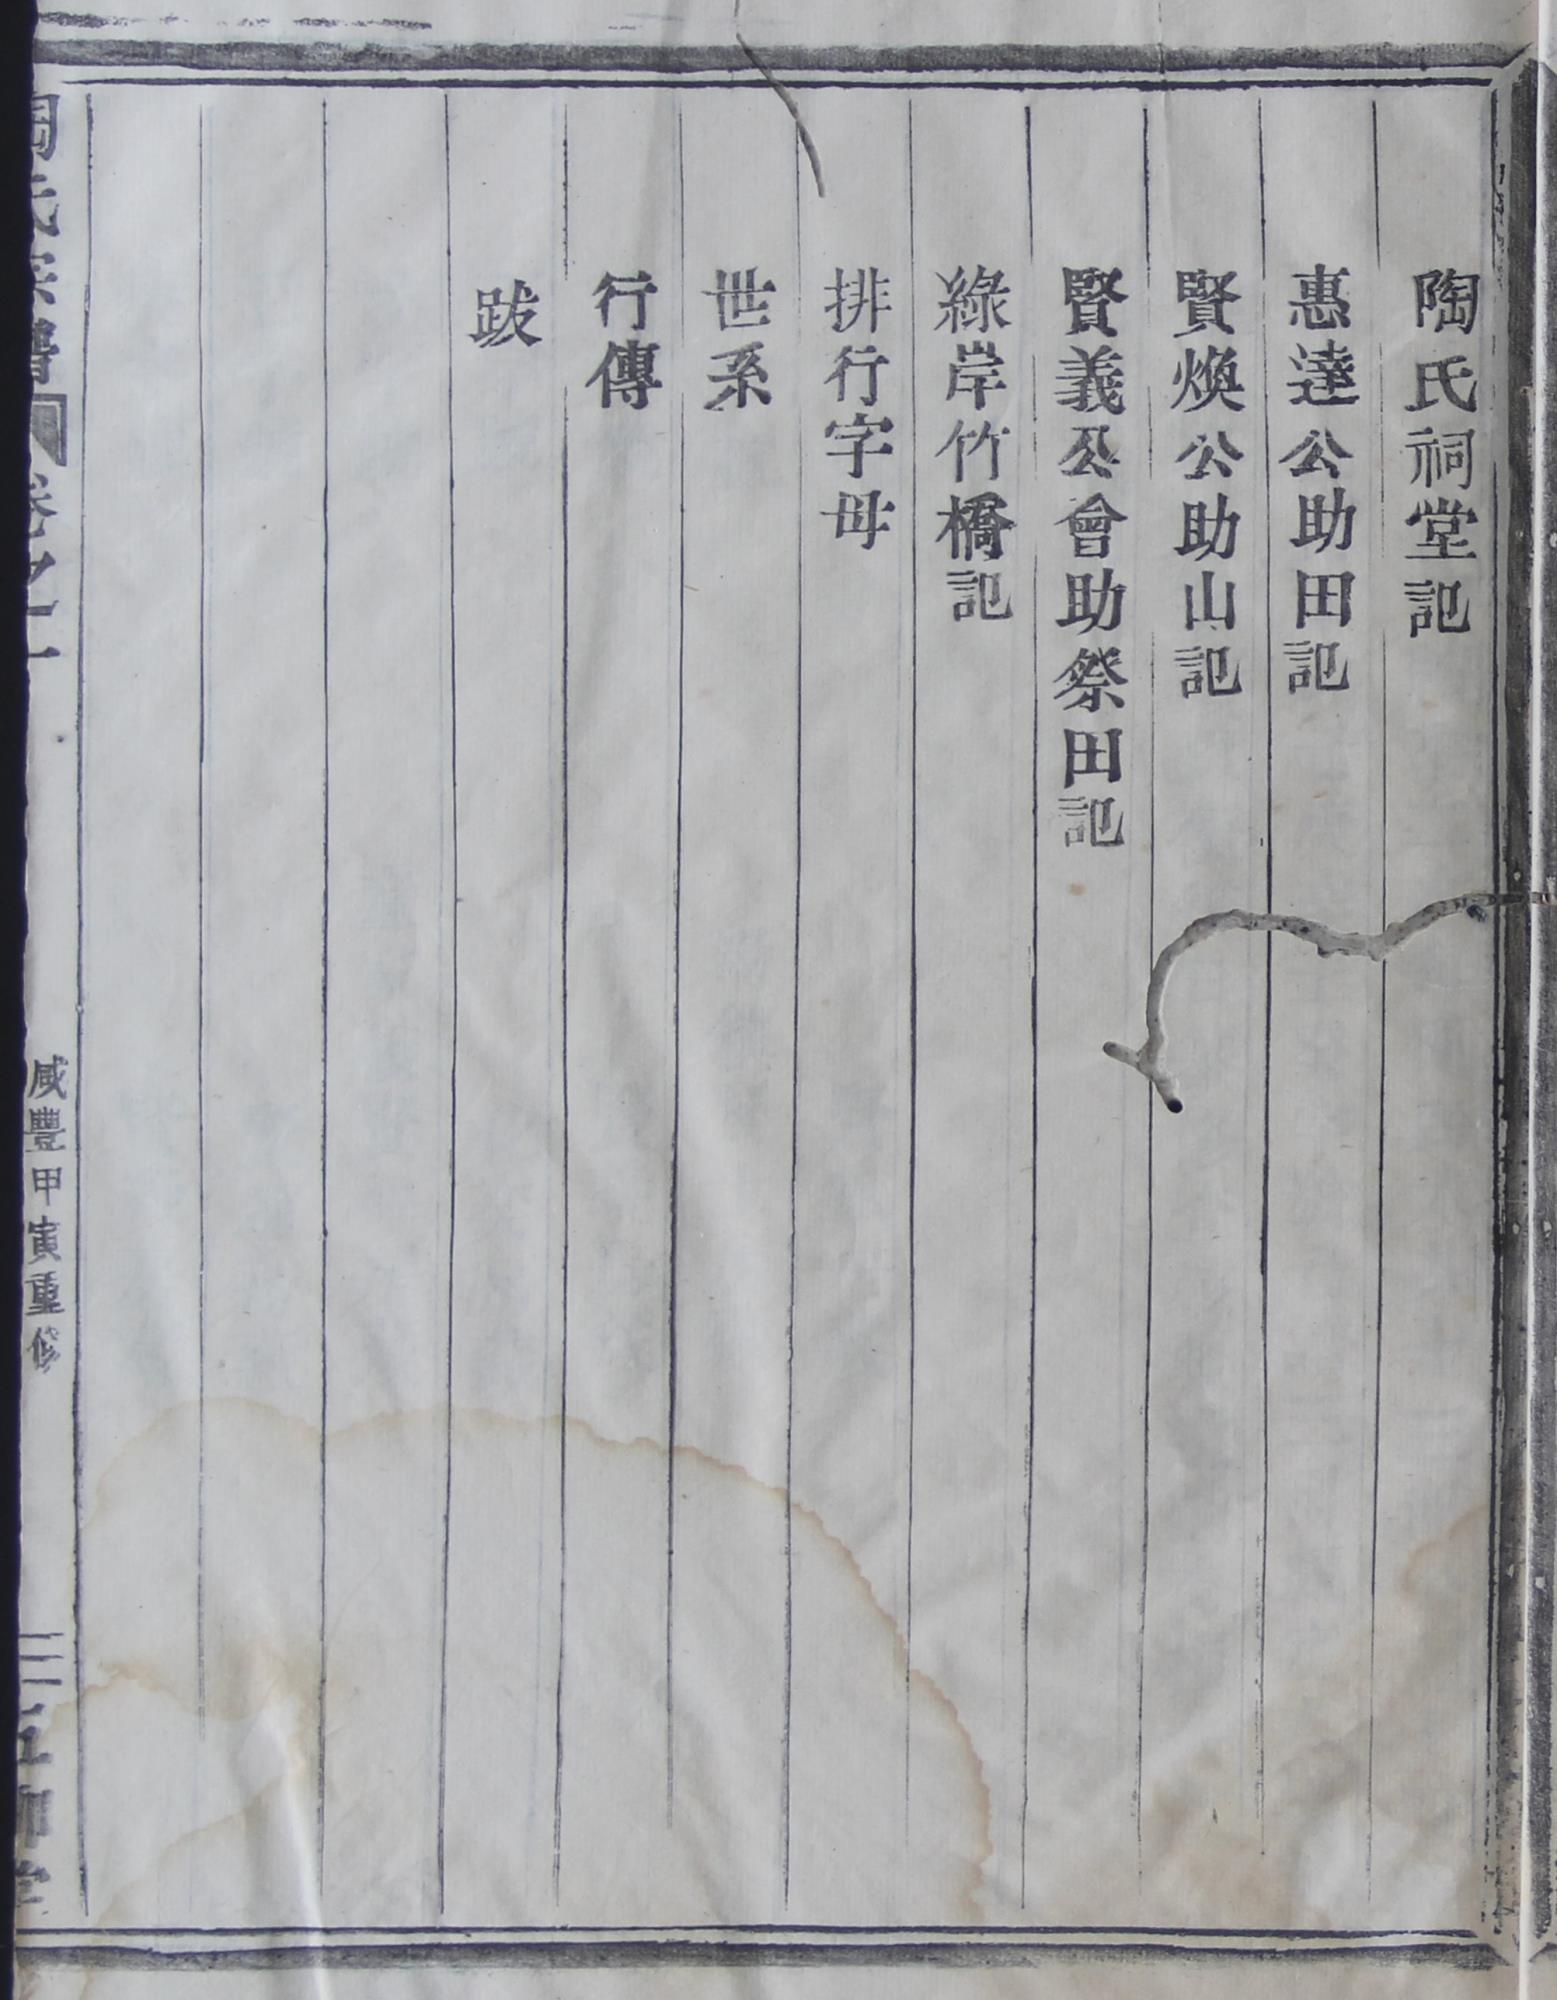 陶氏祠堂記
惠達公助田記
賢煥公助山記
賢義公會助祭田記
綠岸竹橋記
排行字母
世系
行傳
跋
陶氏宗譜 卷之一
咸豐甲寅重修
三 五柳堂